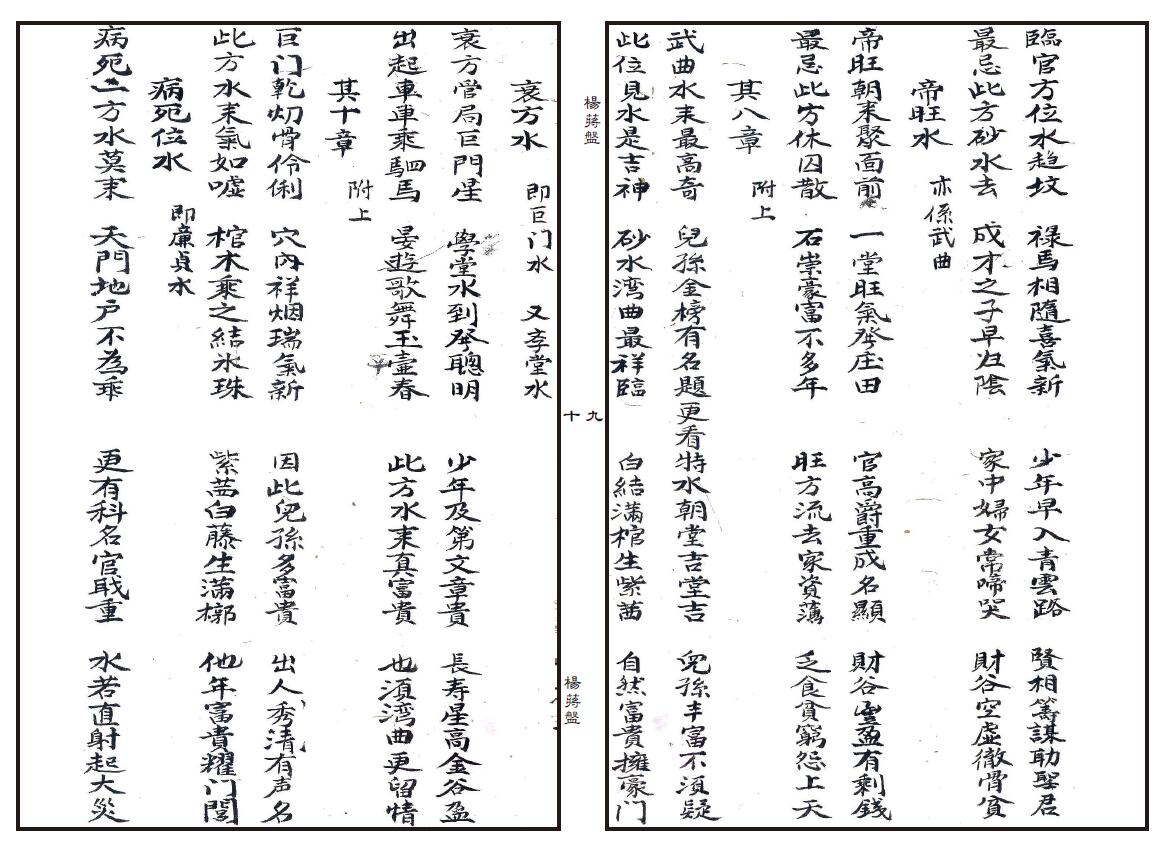 臨官方位水趋坟 祿馬相隨喜氣新 少年早入青雲路 賢相籌謀助聖君
最忌此方砂水去 成才之子早归陰 家中婦女常啼哭 財谷空虛徹骨貧
帝旺水 亦係武曲
帝旺朝来聚面前 一堂旺氣發庄田 官高爵重成名顯 財谷豊盈有剩錢
最忌此方休囚散 石崇豪富不多年 旺方流去家資薄 乏食貧窮怨上天
其八章 附上
武曲水来最高奇 兒孫金榜有名題 更看特水朝堂吉堂吉 兒孫丰富不須疑
此位見水是吉神 砂水湾曲最祥臨 白結满棺生紫茜 自然富貴擁豪门
楊蔣盤
十九
楊蔣盤
衰方水 即巨门水 又李堂水
衰方管局巨門星 學堂水到發聰明 少年及第文章貴 長寿星高金谷盈
出起車車乘駟馬 晏遊歌舞玉壷春 此方水来真富貴 也須湾曲更留情
其十章 附上
巨门乾灱骨伶俐 穴內祥烟瑞氣新 因此兒孫多富貴 出人秀清有声名
此方水来氣如嘘 棺木乘之結氷珠 紫茜白藤生满槨 他年富貴耀门閭
病死位水 即廉貞水
病死二方水莫来 天門地户不為乖 更有科名官戢重 水若直射起大災